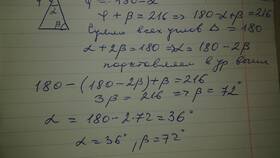 φ = 180-α
φ + β = 216 => 180-α+β = 216
Сумма всех углов Δ = 180
α + 2β = 180 => α = 180 - 2β
подставляем в ур. выше
180 - (180 - 2β) + β = 216
3β = 216 => β = 72°
α = 180 - 2·72 = 36°
α = 36°, β = 72°